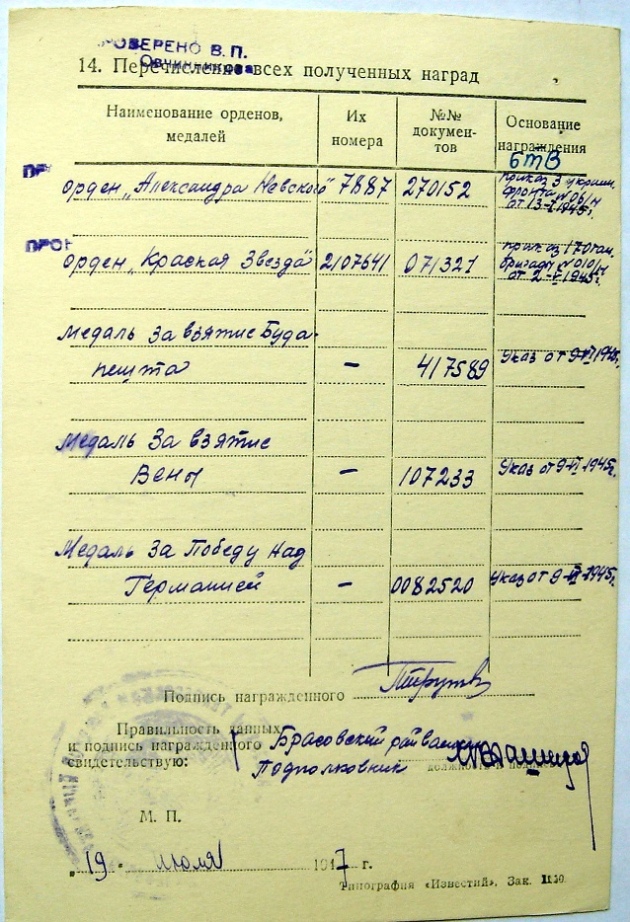 ПРОВЕРЕНО В. П.
Овчинникова
14. Перечисление всех полученных наград
Наименование орденов, медалей
Их номера
№№ документов
Основание награждения
6тв
ПР
орден „Александра Невского" 7887 270152
приказ 3 укршн.
фронта № 061/н
от 13-V-1945г.
ПРОВ
орден „Красная Звезда" 2107641 071321
приказ 170 тан.
бригады № 010/н
от 2-V-1945г.
Медаль за взятие Буда-
пешта — 417589 Указ от 9-VI-1945г.
Медаль За взятие
Вены — 107233 Указ от 9-VI-1945г.
Медаль За Победу над
Германией — 0082520 Указ от 9-VI-1945г.
Подпись награжденного
Правильность данных
и подпись награжденного Брасовский райвоенком
свидетельствую: Подполковник должность и подпись
М. П.
„19" июля 1947 г.
Типография «Известий». Зак. 1140.